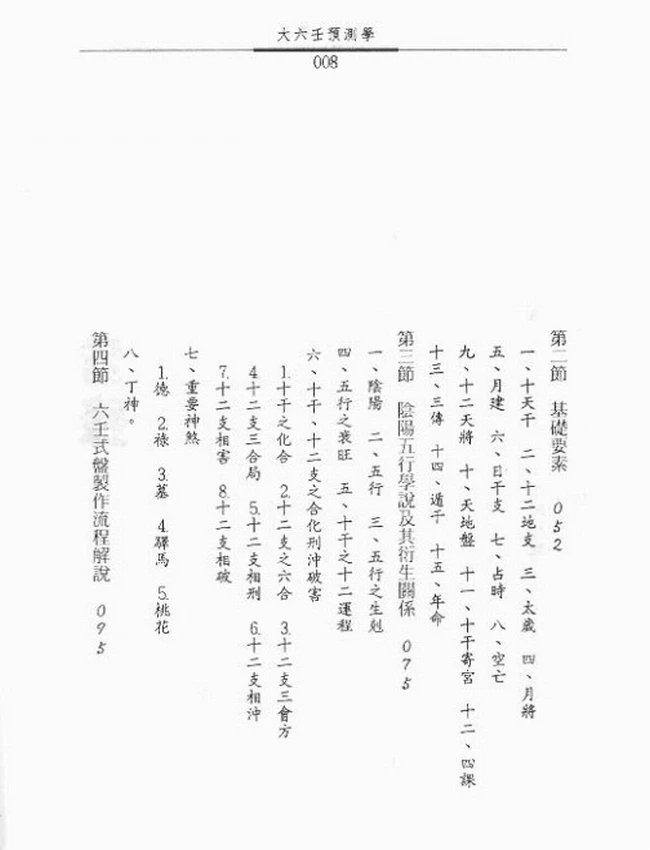 大六壬預測學
008
第二節 基礎要素 052
一、十天干 二、十二地支 三、太歲 四、月將
五、月建 六、日干支 七、占時 八、空亡
九、十二天將 十、天地盤 十一、十干寄宮 十二、四課
十三、三傳 十四、遁干 十五、年命
第三節 陰陽五行學說及其衍生關係 075
一、陰陽 二、五行 三、五行之生剋
四、五行之衰旺 五、十干之十二運程
六、十干、十二支之合化刑沖破害
1.十干之化合 2.十二支之六合 3.十二支三會方
4.十二支三合局 5.十二支相刑 6.十二支相沖
7.十二支相害 8.十二支相破
七、重要神煞
1.德 2.祿 3.墓 4.驛馬 5.桃花
八、丁神。
第四節 六壬式盤製作流程解說 095